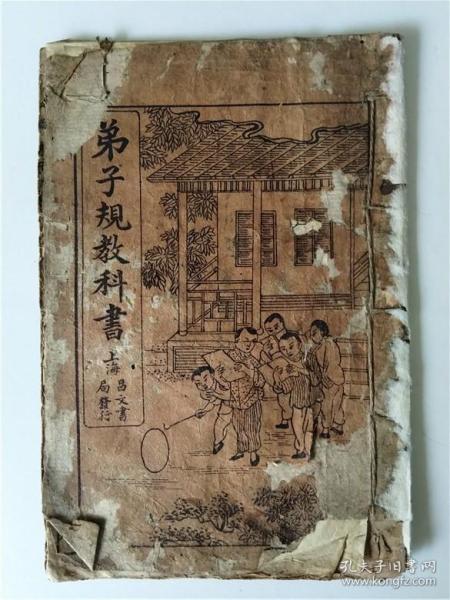 弟子規教科書
上海
昌文書
局發行
孔夫子旧书网
www.kongfz.com